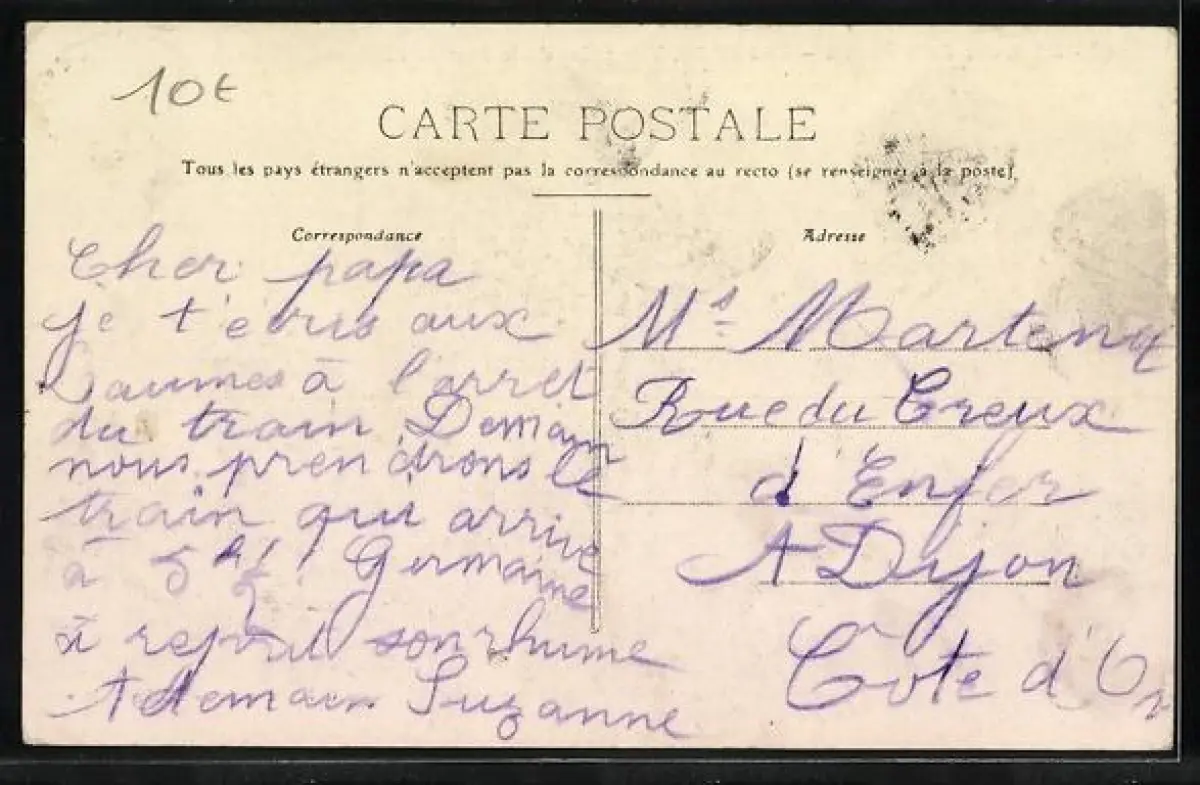 10€
CARTE POSTALE
Tous les pays étrangers n'acceptent pas la correspondance au recto (se renseigner à la poste)
Correspondance
Cher papa
je t'écris aux
Laumes à l'arret
du train Demain
nous prendrons le
train qui arrive
à 5h 1/2 Germaine
à reprit son rhume
A demain Suzanne
Adresse
Mr Marteny
Rue du Creux
d'Enfer
A Dijon
Cote d'Or